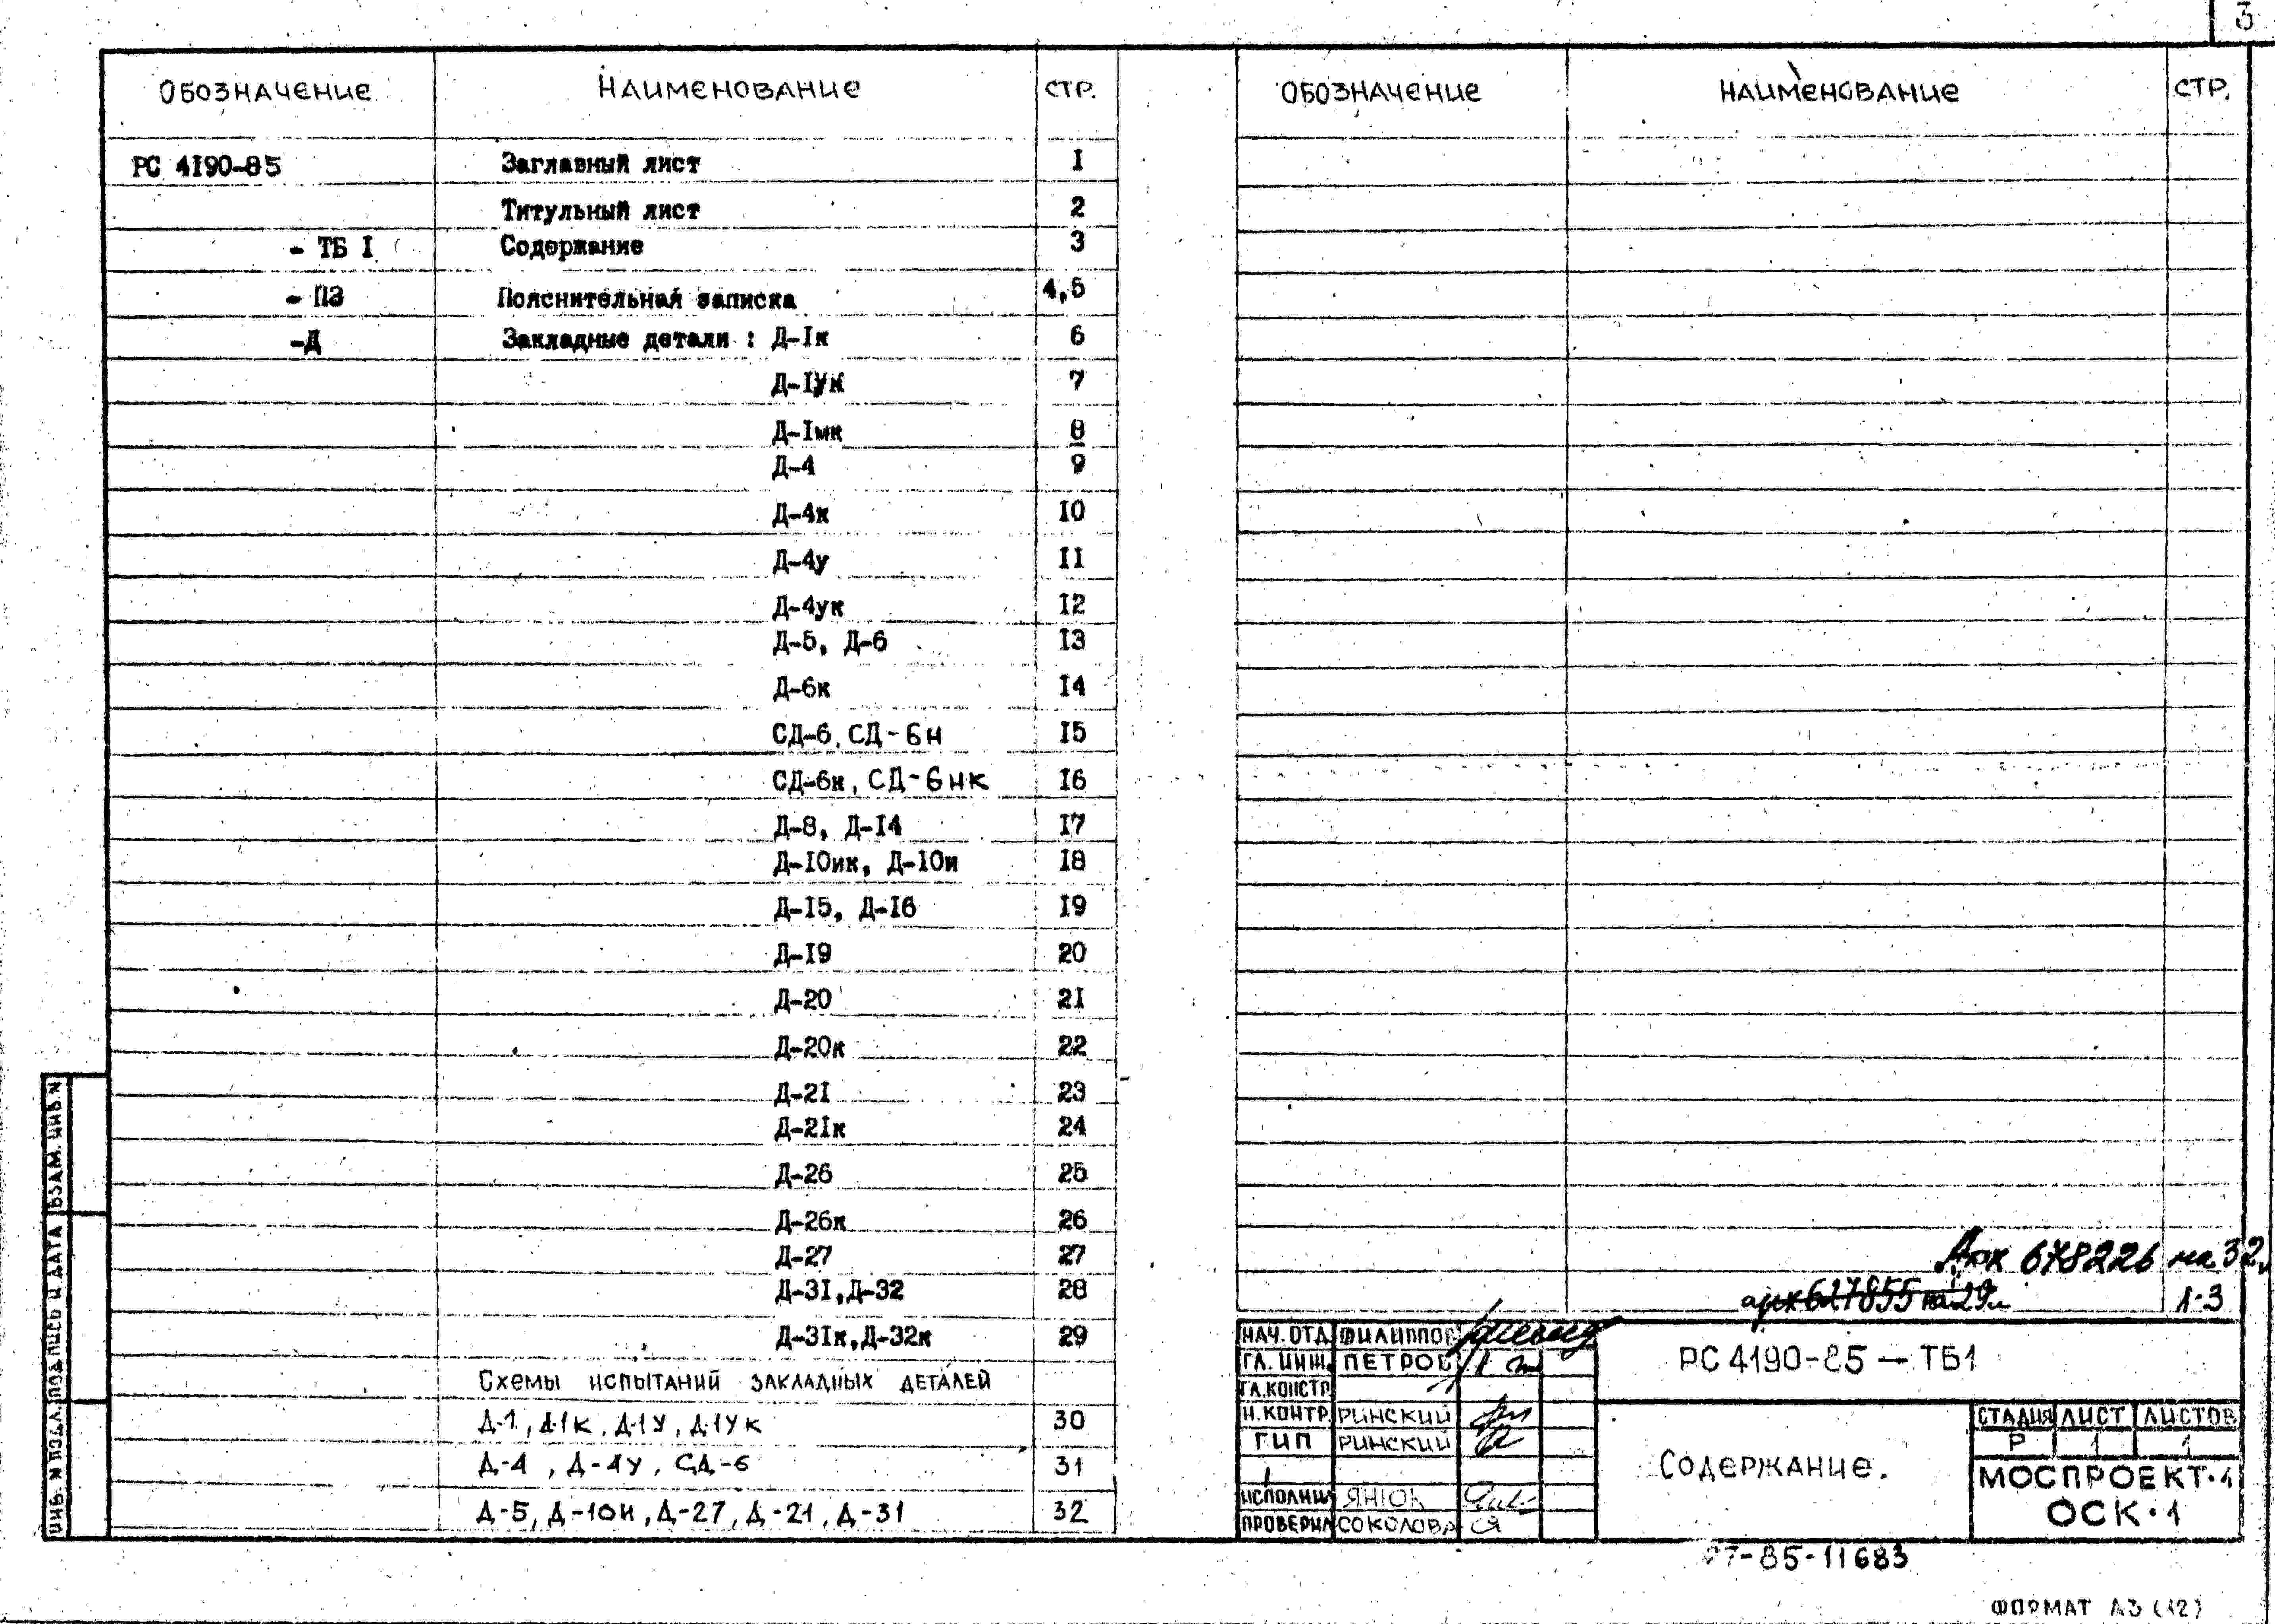 3
ОБОЗНАЧЕНИЕ НАИМЕНОВАНИЕ СТР.
РС 4I90-85 Заглавный лист I
Титульный лист 2
- ТБ I Содержание 3
- ПЗ Пояснительная записка 4,5
-Д Закладные детали : Д-Iк 6
Д-IУК 7
Д-Iмк 8
Д-4 9
Д-4к I0
Д-4у II
Д-4ук I2
Д-5, Д-6 I3
Д-6к I4
СД-6, СД-6Н I5
СД-6к, СД-6НК I6
Д-8, Д-I4 I7
Д-I0ик, Д-I0и I8
Д-I5, Д-I6 I9
Д-I9 20
Д-20 2I
Д-20к 22
Д-2I 23
Д-2Iк 24
Д-26 25
Д-26к 26
Д-27 27
Д-3I,Д-32 28
Д-3Iк,Д-32к 29
СХЕМЫ ИСПЫТАНИЙ ЗАКЛАДНЫХ ДЕТАЛЕЙ
Д-1, Д-1К, Д-1У, Д-1УК 30
Д-4, Д-4У, СД-6 31
Д-5, Д-10И, Д-27, Д-21, Д-31 32
ОБОЗНАЧЕНИЕ НАИМЕНОВАНИЕ СТР.
Арх 678226 на 32
арх 627855 на 29л 1-3
НАЧ. ОТД. ФИЛИППОВ
ГЛ. ИНЖ. ПЕТРОВ
ГЛ.КОНСТР.
Н.КОНТР. РИНСКИЙ
ГИП РИНСКИЙ
ИСПОЛНИЛ ЯНЮК
ПРОВЕРИЛ СОКОЛОВА
РС 4190-85 — ТБ1
СОДЕРЖАНИЕ.
СТАДИЯ ЛИСТ ЛИСТОВ
Р 1 1
МОСПРОЕКТ·1
ОСК·1
97-85-11683
ФОРМАТ А3 (12)
ИНВ. N ПОДЛ. ПОДПИСЬ И ДАТА ВЗАМ. ИНВ. N